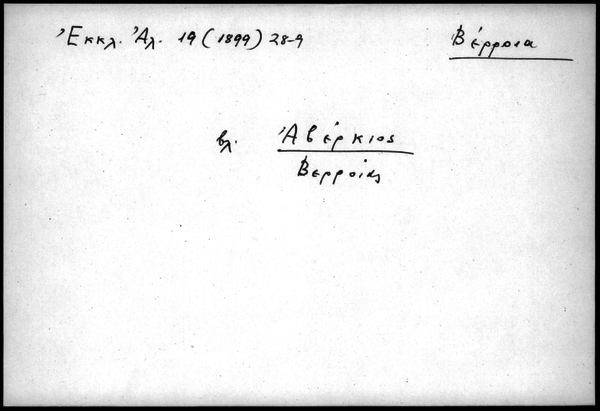 Ἐκκλ. Ἀλ. 19 (1899) 28-9
Βέρροια
βλ. Ἀβέρκιος
Βερροίας